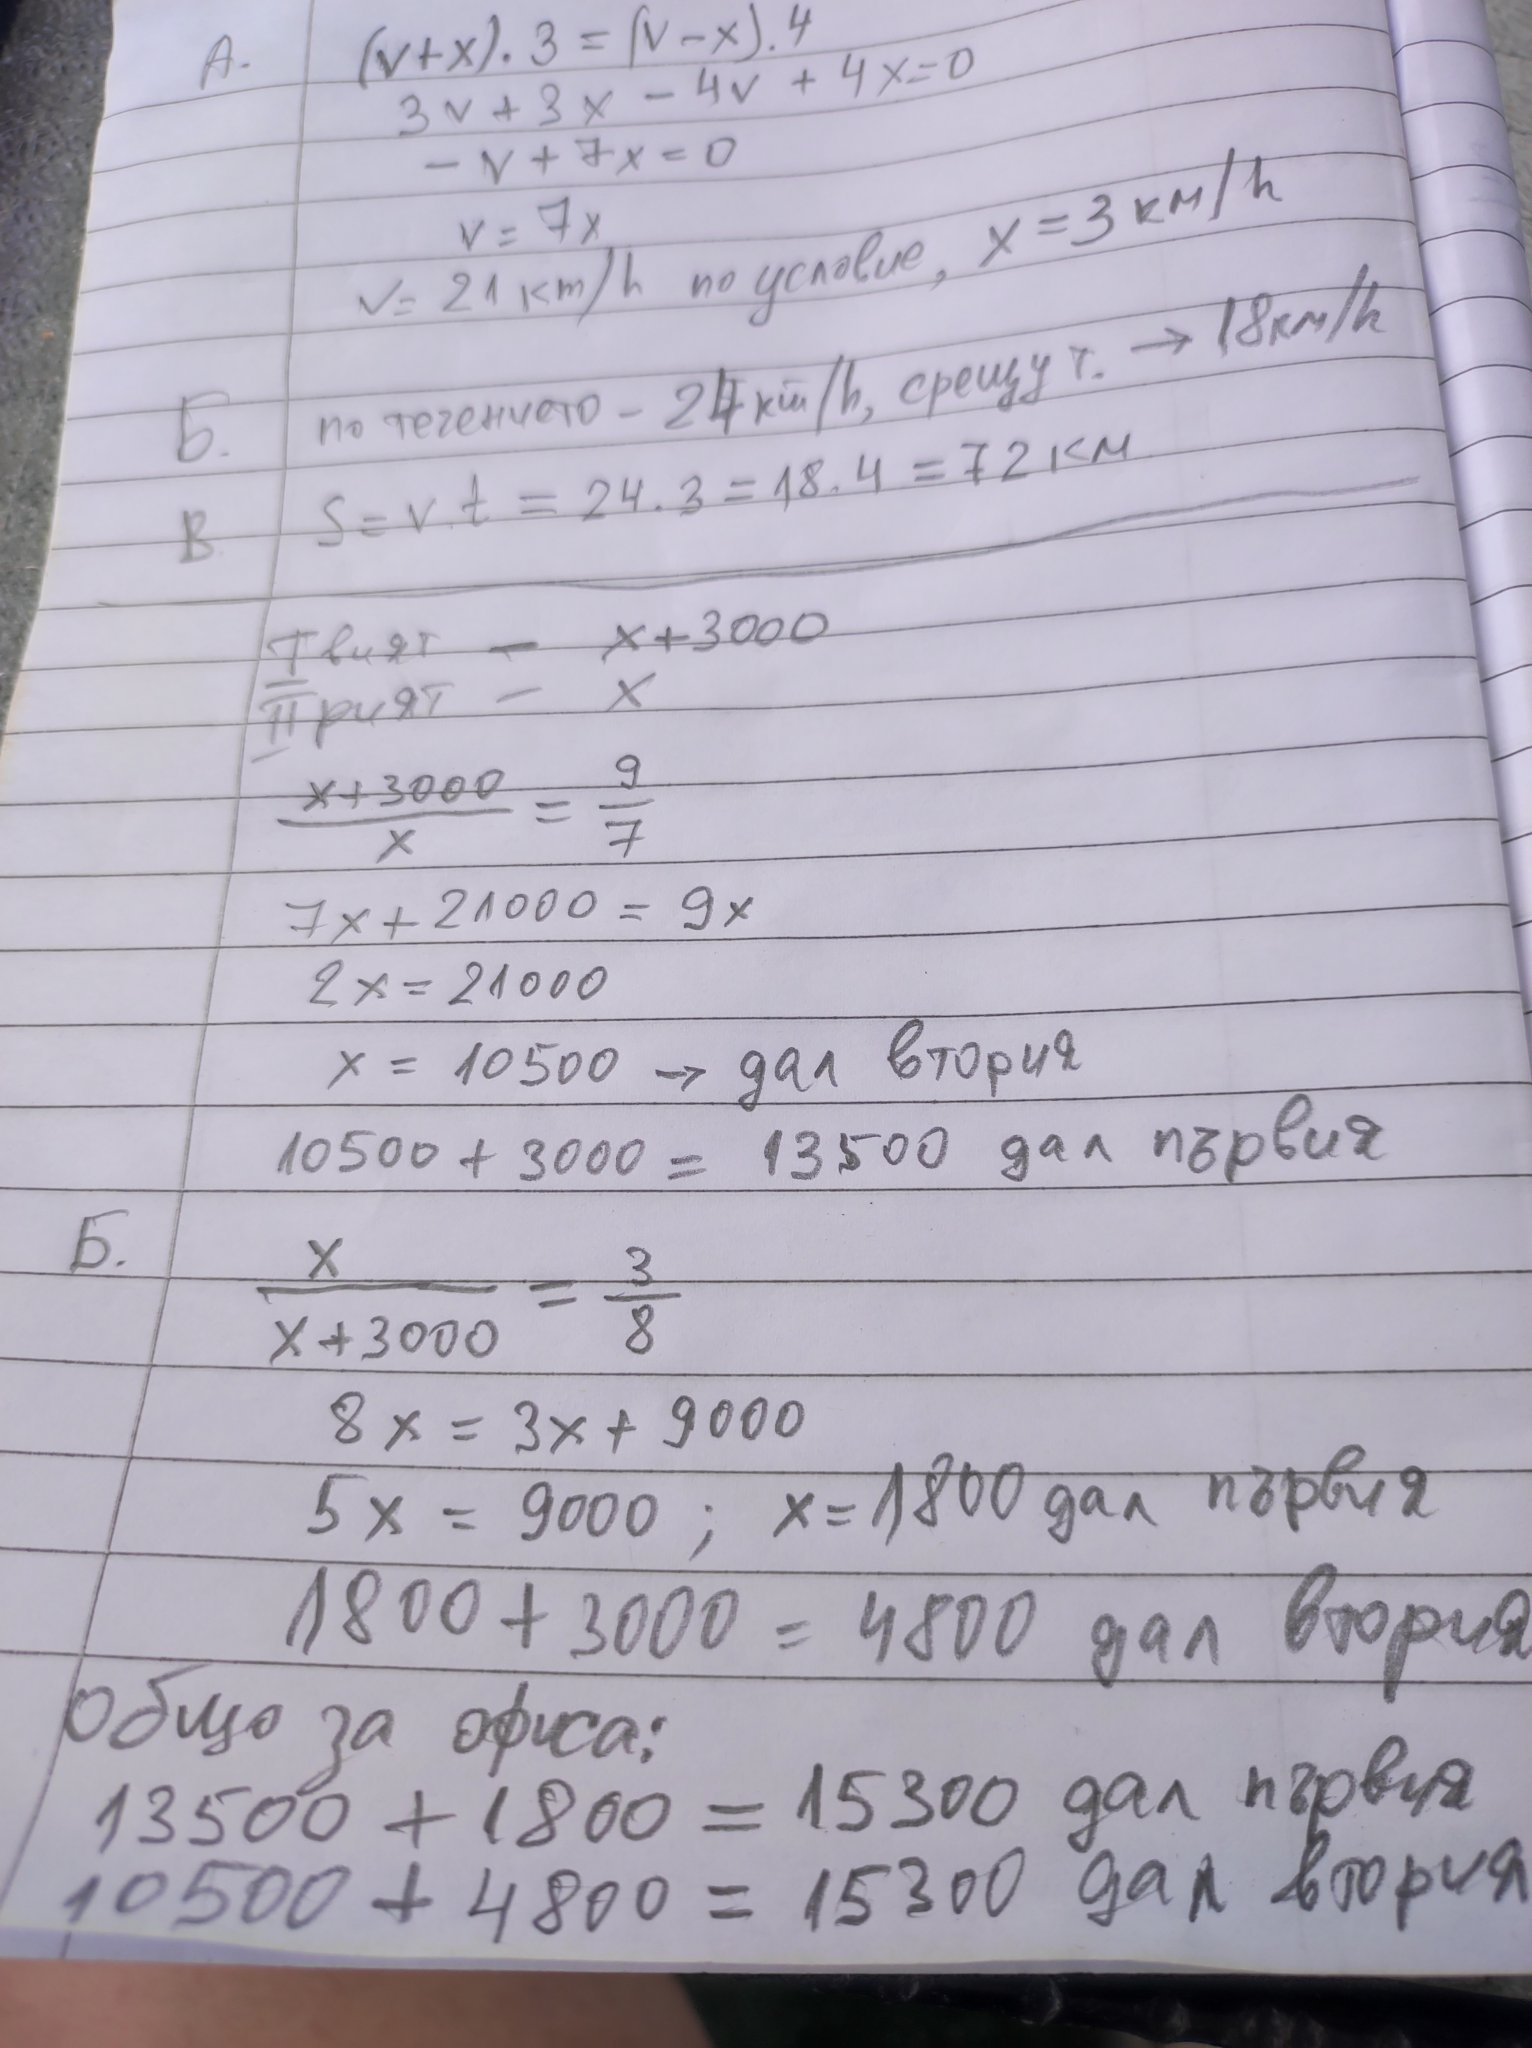 А. (v+x).3=(v-x).4
3v+3x-4v+4x=0
-v+7x=0
v=7x
v=21 km/h по условие, x=3 км/h
Б. по течението - 24 km/h, срещу т. → 18 км/h
В S=v.t=24.3=18.4=72 км
I вият - x+3000
II рият - x
x+3000/x = 9/7
7x+21000=9x
2x=21000
x=10500 → дал втория
10500+3000=13500 дал първия
Б. x/x+3000 = 3/8
8x=3x+9000
5x=9000; x=1800 дал първия
1800+3000=4800 дал втория
Общо за офиса:
13500+1800=15300 дал първия
10500+4800=15300 дал втория